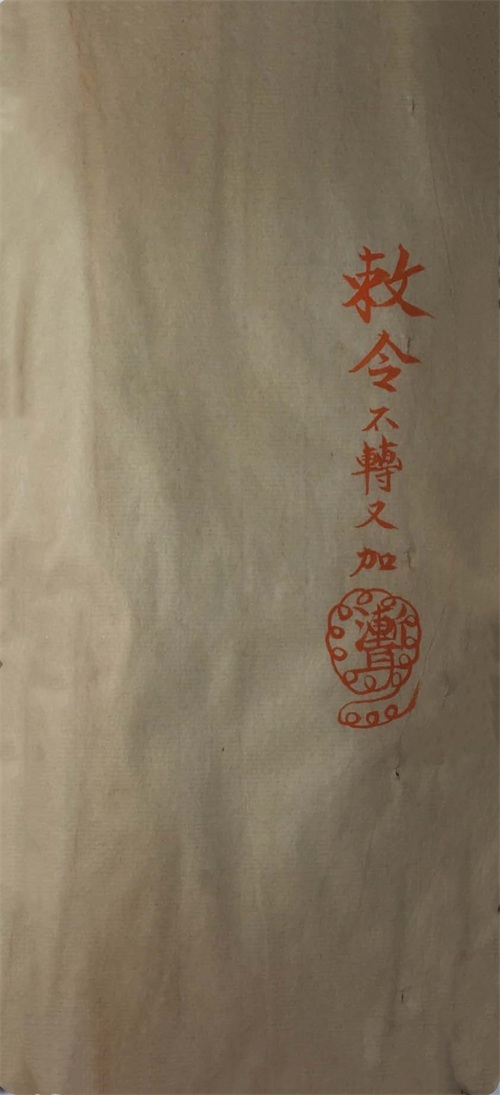 敕令不轉又加